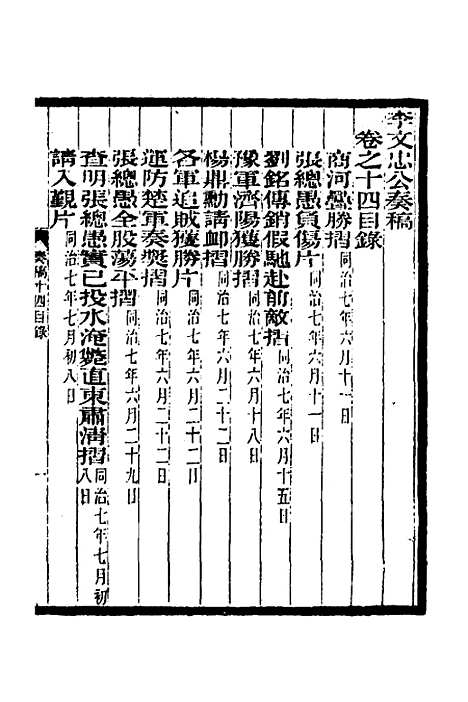 李文忠公奏稿
卷之十四目錄
商河疊勝摺同治七年六月十一日
張總愚負傷片同治七年六月十一日
劉銘傳銷假馳赴前敵摺同治七年六月十五日
豫軍濟陽獲勝摺同治七年六月十八日
楊鼎勳請卹摺同治七年六月二十二日
各軍追賊獲勝片同治七年六月二十二日
運防楚軍奏獎摺同治七年六月二十二日
張總愚全股蕩平摺同治七年六月二十九日
查明張總愚實已投水淹斃直東肅清摺同治七年七月初八日
請入覲片同治七年七月初八日
奏稿十四目錄
一